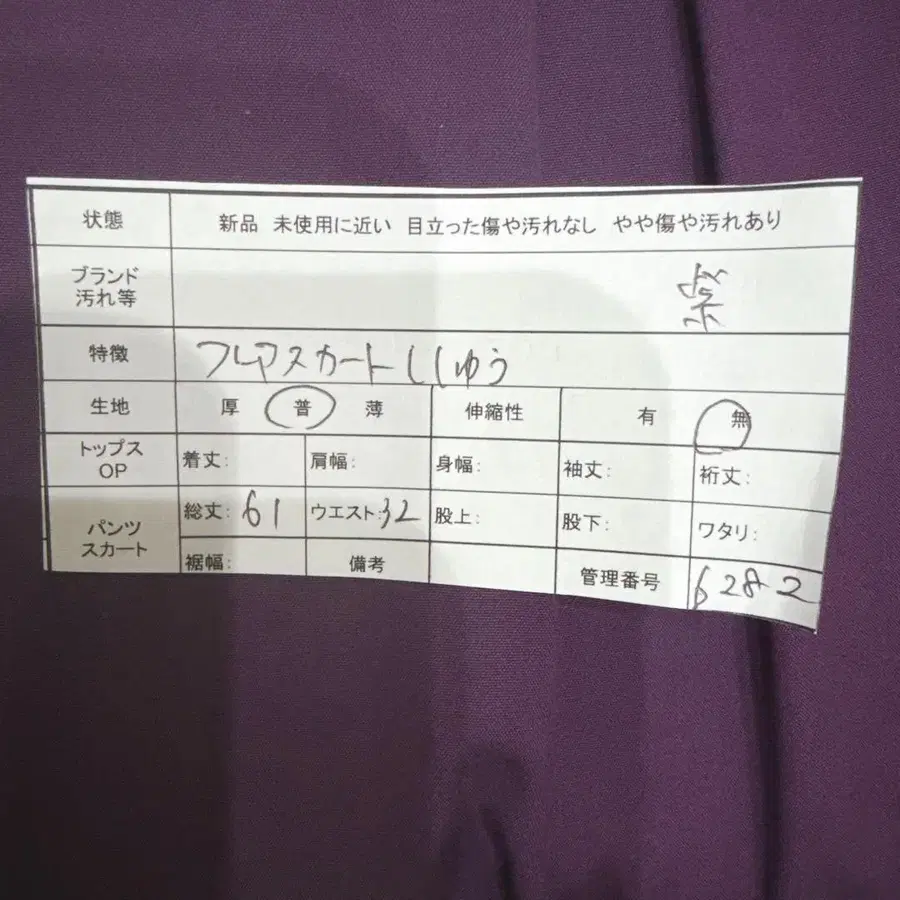 状態 新品 未使用に近い 目立った傷や汚れなし やや傷や汚れあり
ブランド
汚れ等 紫
特徴 フレアスカートししゅう
生地 厚 普 薄 伸縮性 有 無
トップス
OP 着丈: 肩幅: 身幅: 袖丈: 裄丈:
パンツ
スカート
総丈: 61 ウエスト: 32 股上: 股下: ワタリ:
裾幅: 備考 管理番号 6282